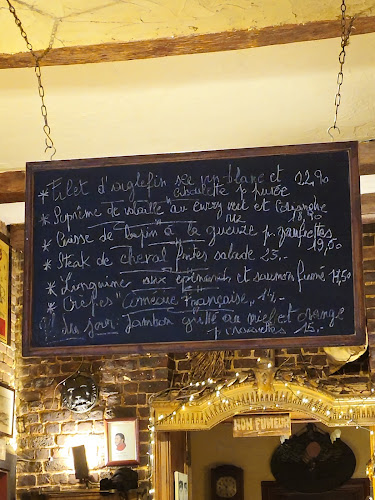 * Filet d'aiglefin sce vin blanc et
ciboulette p purée 22,90
* Suprême de volaille "au curry vert et Coriandre
riz 18,90
* Cuisse de lapin "à la gueuze p. gaufrettes
19,00
* Steak de cheval frites salade 23,-
* Linguine aux épinards et saumon fumé 17,50
* Crêpes "Comédie Française" 14.-
du jour: Jambon grillé au miel et orange
p. croquettes 15,-
NON FUMEUR